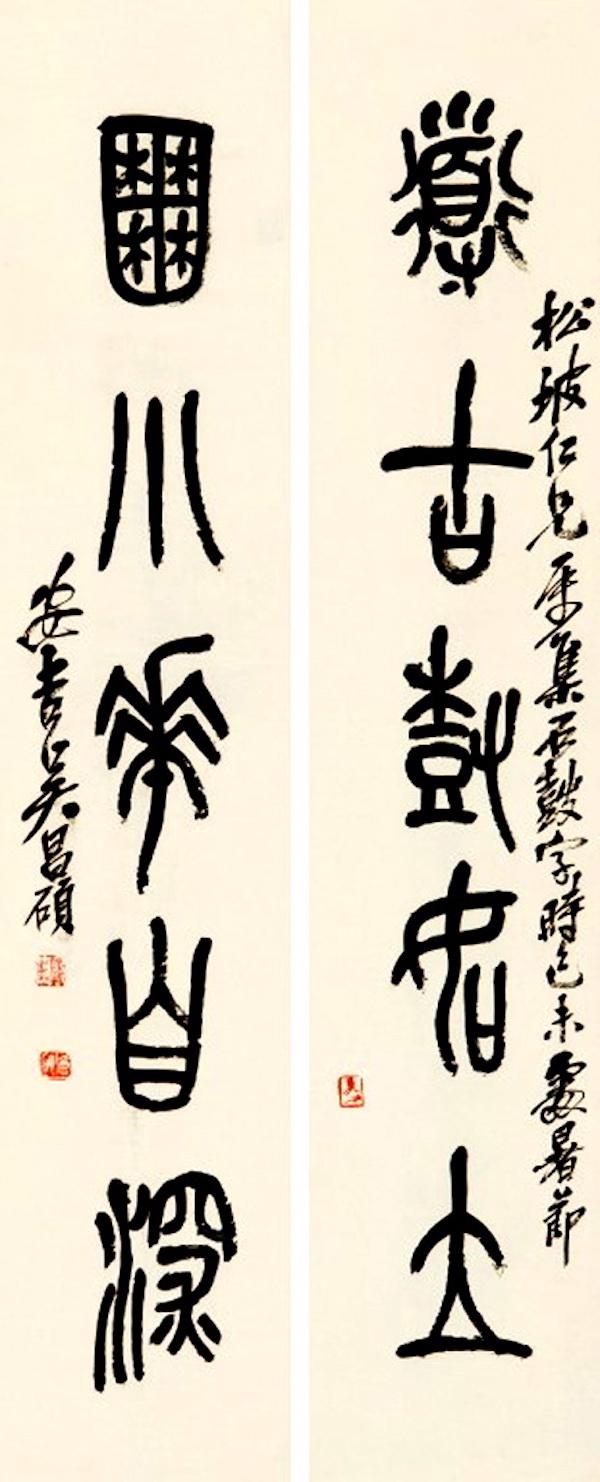 道古樹如立
松坡仁兄屬集石鼓字時己未處暑節
囿小華自深
安吉吳昌碩